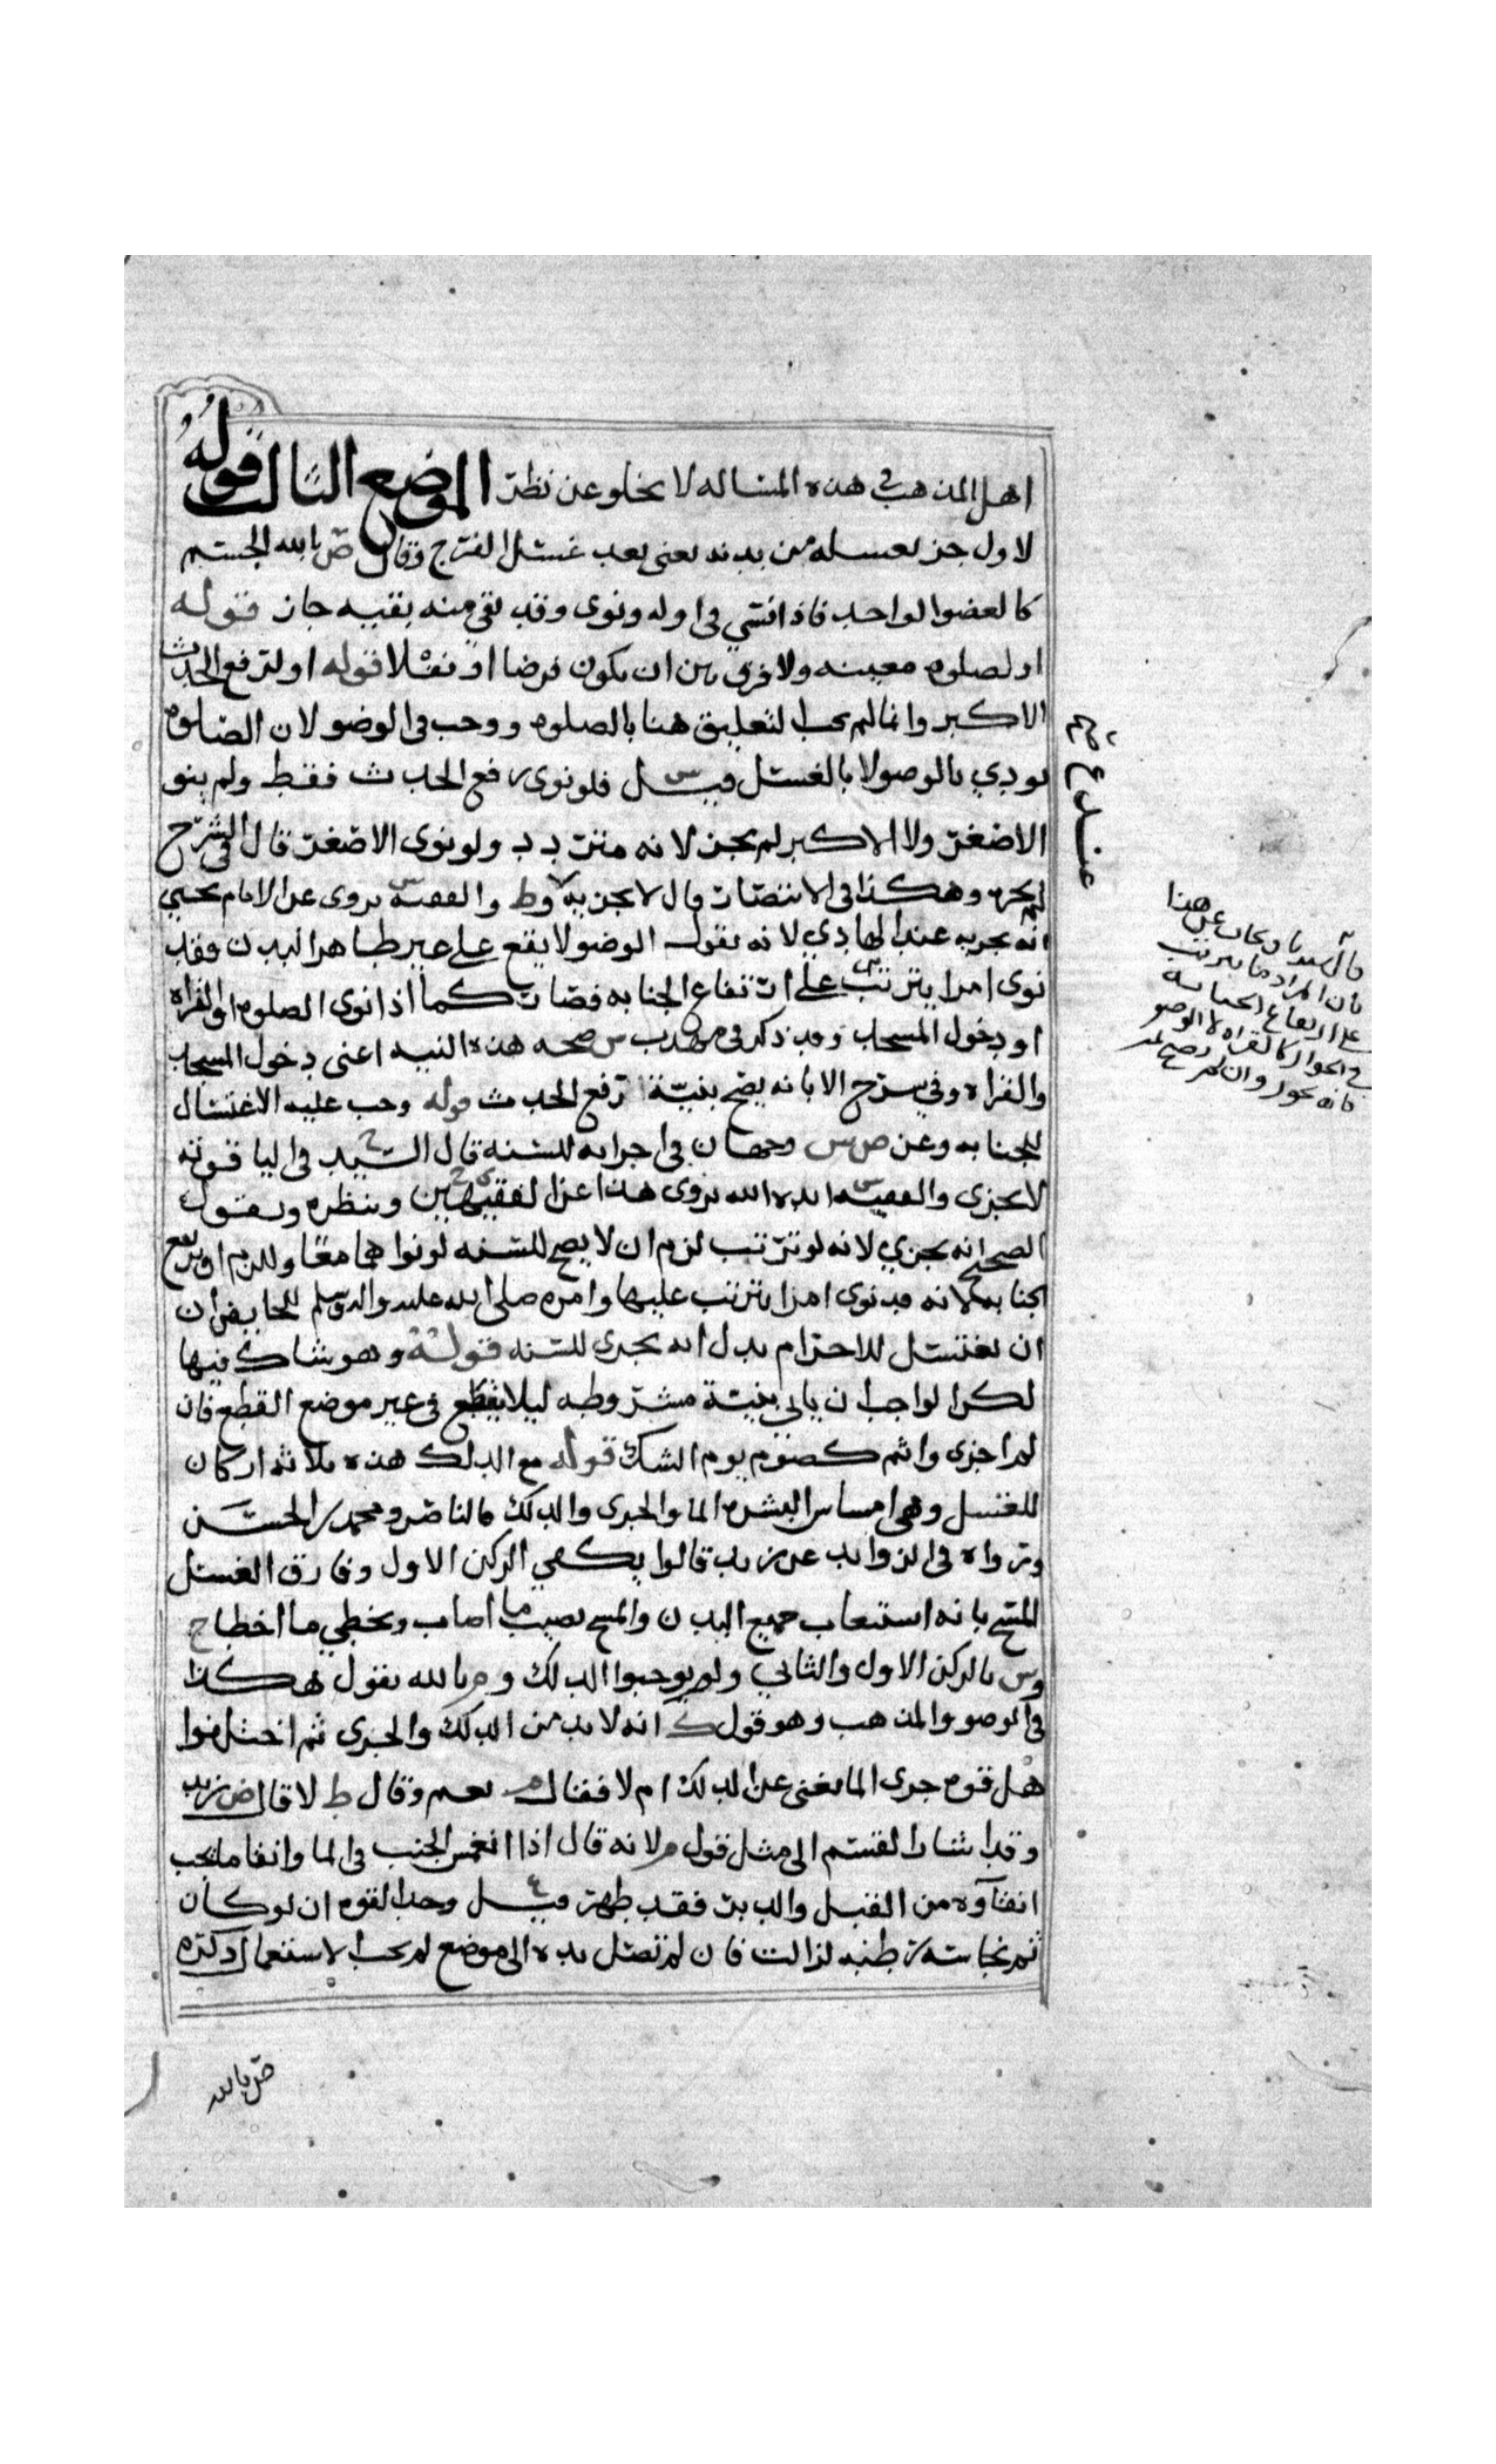 اهل المذهب في هذه المساله لا يخلو عن نظر الموضع الثالث قوله
لاول جز يغسله من بدنه يعنى بعد غسل الفرج وقال ص بالله الجسم
كالعضو الواحد فاذا نسي في اوله ونوى وقد بقي منه بقيه جاز قوله
او لصلوه معينه ولا فرق بين ان يكون فرضا او نفلا قوله او لترفع الحدث
الاكبر وانما لم يجب لتعليق هنا بالصلوه ووجب في الوضو لان الصلوه
تودي بالوضو لا بالغسل قيل س فلو نوى رفع الحدث فقط ولم ينو
الاصغر ولا الاكبر لم يجز لانه متردد ولو نوى الاصغر قال في الشرح
لم يجزه وهكذا في الانتصار قال لا يجزيه وط والفقيه س يروى عن الامام يحيى
انه يجزيه عند الهادي لانه يقول الوضو لا يقع على غير طاهر البدن وقد
نوى امرا يترتب على ارتفاع الجنابه فصار كما اذا نوى الصلوه او القراه
او دخول المسجد وقد ذكر في مهذب س صحه هذه النيه اعنى دخول المسجد
والقراه وفي شرح الابانه يصح بنيّة رفع الحدث قوله وجب عليه الاغتسال
للجنابه وعن ص س وجهان في اجزايه للسنه قال السيد ح في الياقوته
لا يجزى والفقيه س ايده الله يروى هذا عن الفقيهين وينظره ويقول
الصحيح انه يجزي لانه لو ترتب لزم ان لا يصح للسنه لو نواهما معا وللزم ان يرتفع
الجنابه لانه قد نوى امرا يترتب عليها وامره صلى الله عليه واله وسلم للحايض ان
ان تغتسل للاحرام يدل انه يجزى للسنه قوله وهو شاك فيها
لكن الواجب ان ياتي بنيّة مشروطه ليلا يقطع في غير موضع القطع فان
لم اجزى واثم كصوم يوم الشك قوله مع الدلك هذه ثلاثه اركان
للغسل وهي امساس البشره الما والجرى والدلك فالناصر ومحمد بن الحسن
ورواه في الزوايد عن زيد قالوا يكفي الركن الاول وفارق الغسل
المسح بانه استيعاب جميع البدن والمسح يصيب ما اصاب ويخطي ما اخطا ح
وس بالركن الاول والثاني ولم يوجبوا الدلك و م بالله يقول هكذا
في الوضو والمذهب وهو قول ك انه لا بد من الدلك والجرى ثم اختلفوا
هل قوه جرى الما يغنى عن الدلك ام لا فقال م نعم وقال ط لا قال ض زيد
وقد اشار القسم الى مثل قول م لانه قال اذا انغمس الجنب في الما وانقا ما يجب
انقآوه من القبل والدبر فقد طهر قيل ع وحد القوه ان لو كان
ثم نجاسه رطبه لزالت فان لم تصل يده الى موضع لم يجب الاستعمال ذكره
ص بالله
قال سيدنا ويجاب عن هذا
بان المراد ما يترتب
على ارتفاع الجنابه
في الجواز كالقراه لا الوضو
فانه يجوز وان لم يصح